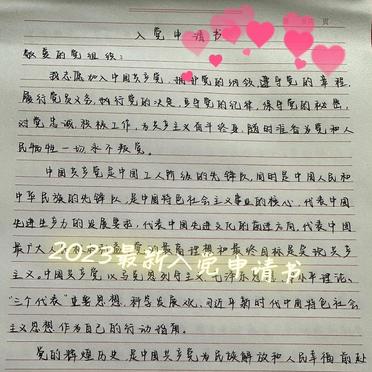 入党申请书
敬爱的党组织:
我志愿加入中国共产党,拥护党的纲领,遵守党的章程,
履行党员义务,执行党的决定,严守党的纪律,保守党的秘密,
对党忠诚,积极工作,为共产主义奋斗终身,随时准备为党和人
民牺牲一切,永不叛党。
中国共产党是中国工人阶级的先锋队,同时是中国人民和
中华民族的先锋队,是中国特色社会主义事业的核心,代表中国
先进生产力的发展要求,代表中国先进文化的前进方向,代表中国
最广大人 最高理想和最终目标是实现共产
2023最新入党申请书
主义。中国共产党以马克思列宁主义、毛泽东 小平理论、
"三个代表"重要思想、科学发展观、习近平新时代中国特色社会
主义思想作为自己的行动指南。
党的辉煌历史,是中国共产党为民族解放和人民幸福,前赴